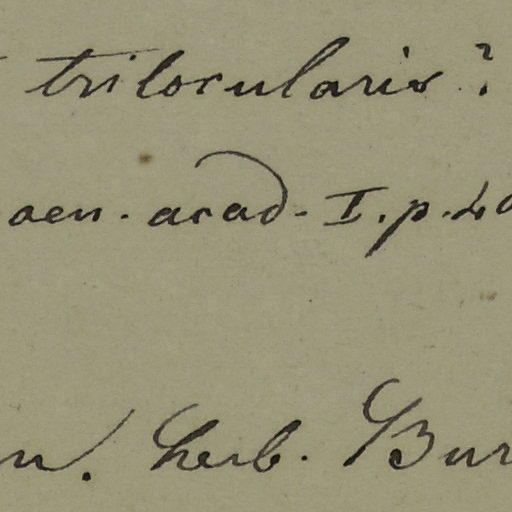 trilocularis ?
aen. acad. I. p. 20
n. Herb. Bur